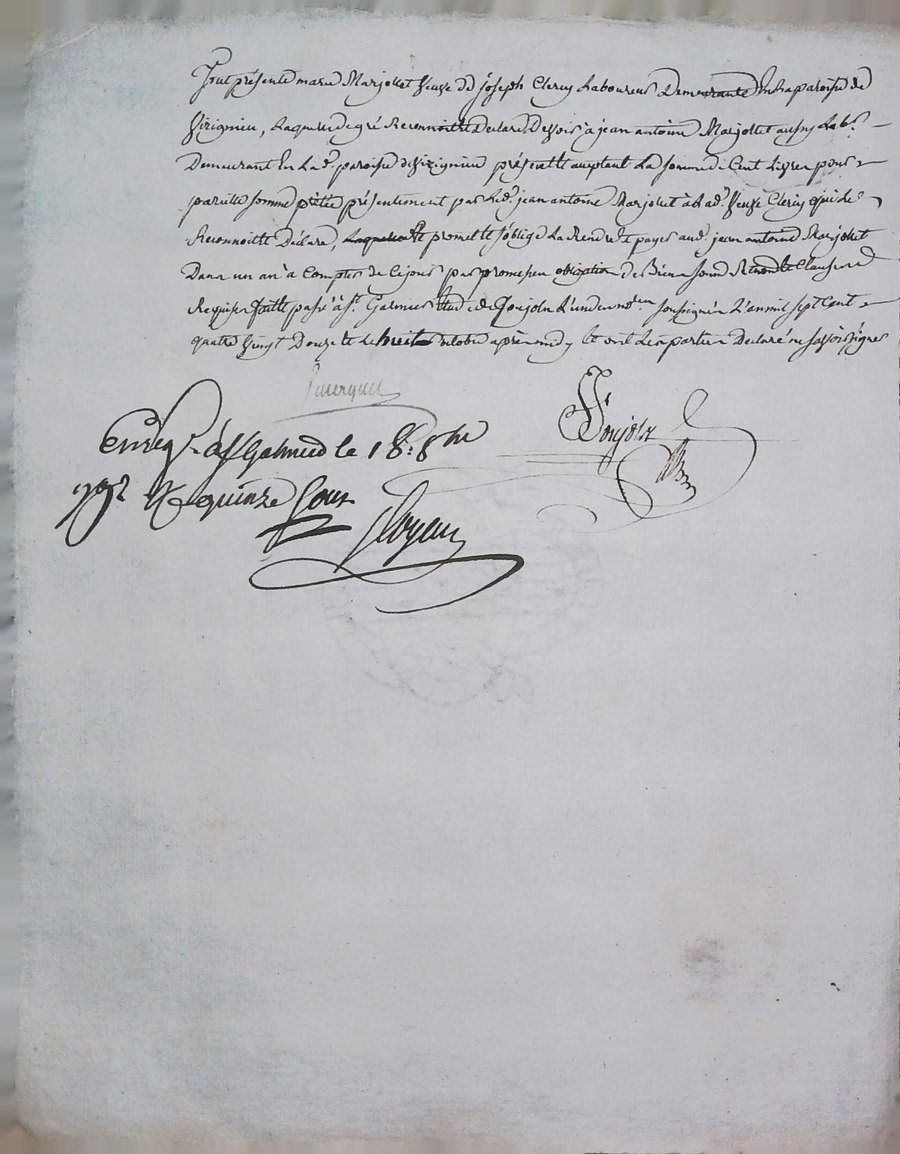 fut présente marie Marjollet veuve de joseph Clericy Laboureur Demeurante En la paroisse de
Virignieu, Laquelle de gré Reconnoitt Declare Devoir à jean antoine Marjollet aussy Labr.
Demeurant En Lad. paroisse de virignieu présent et acceptant La somme de Cent Livres pour
pareille somme prêtée présentement par led. jean antoine Marjollet à lad. veuve Clericy qui le
Reconnoitt Déclare, promet et s'oblige La Rendre et payer aud. jean antoine Marjollet
Dans un an à Compter de Ce jour par promesse obligation de Biens soumd. Renond. et Clauses
Requises faitte passé à st. Garmier Etude de Goujoln L'un des nores. soussigné L'an mil sept Cent
quatre vingt Douze et le huit octobre après midy et ont Les parties Declaré ne sçavoir signer
Enreg. à st Galmier le 18. 8bre
792 R quinze sous
Goujoln